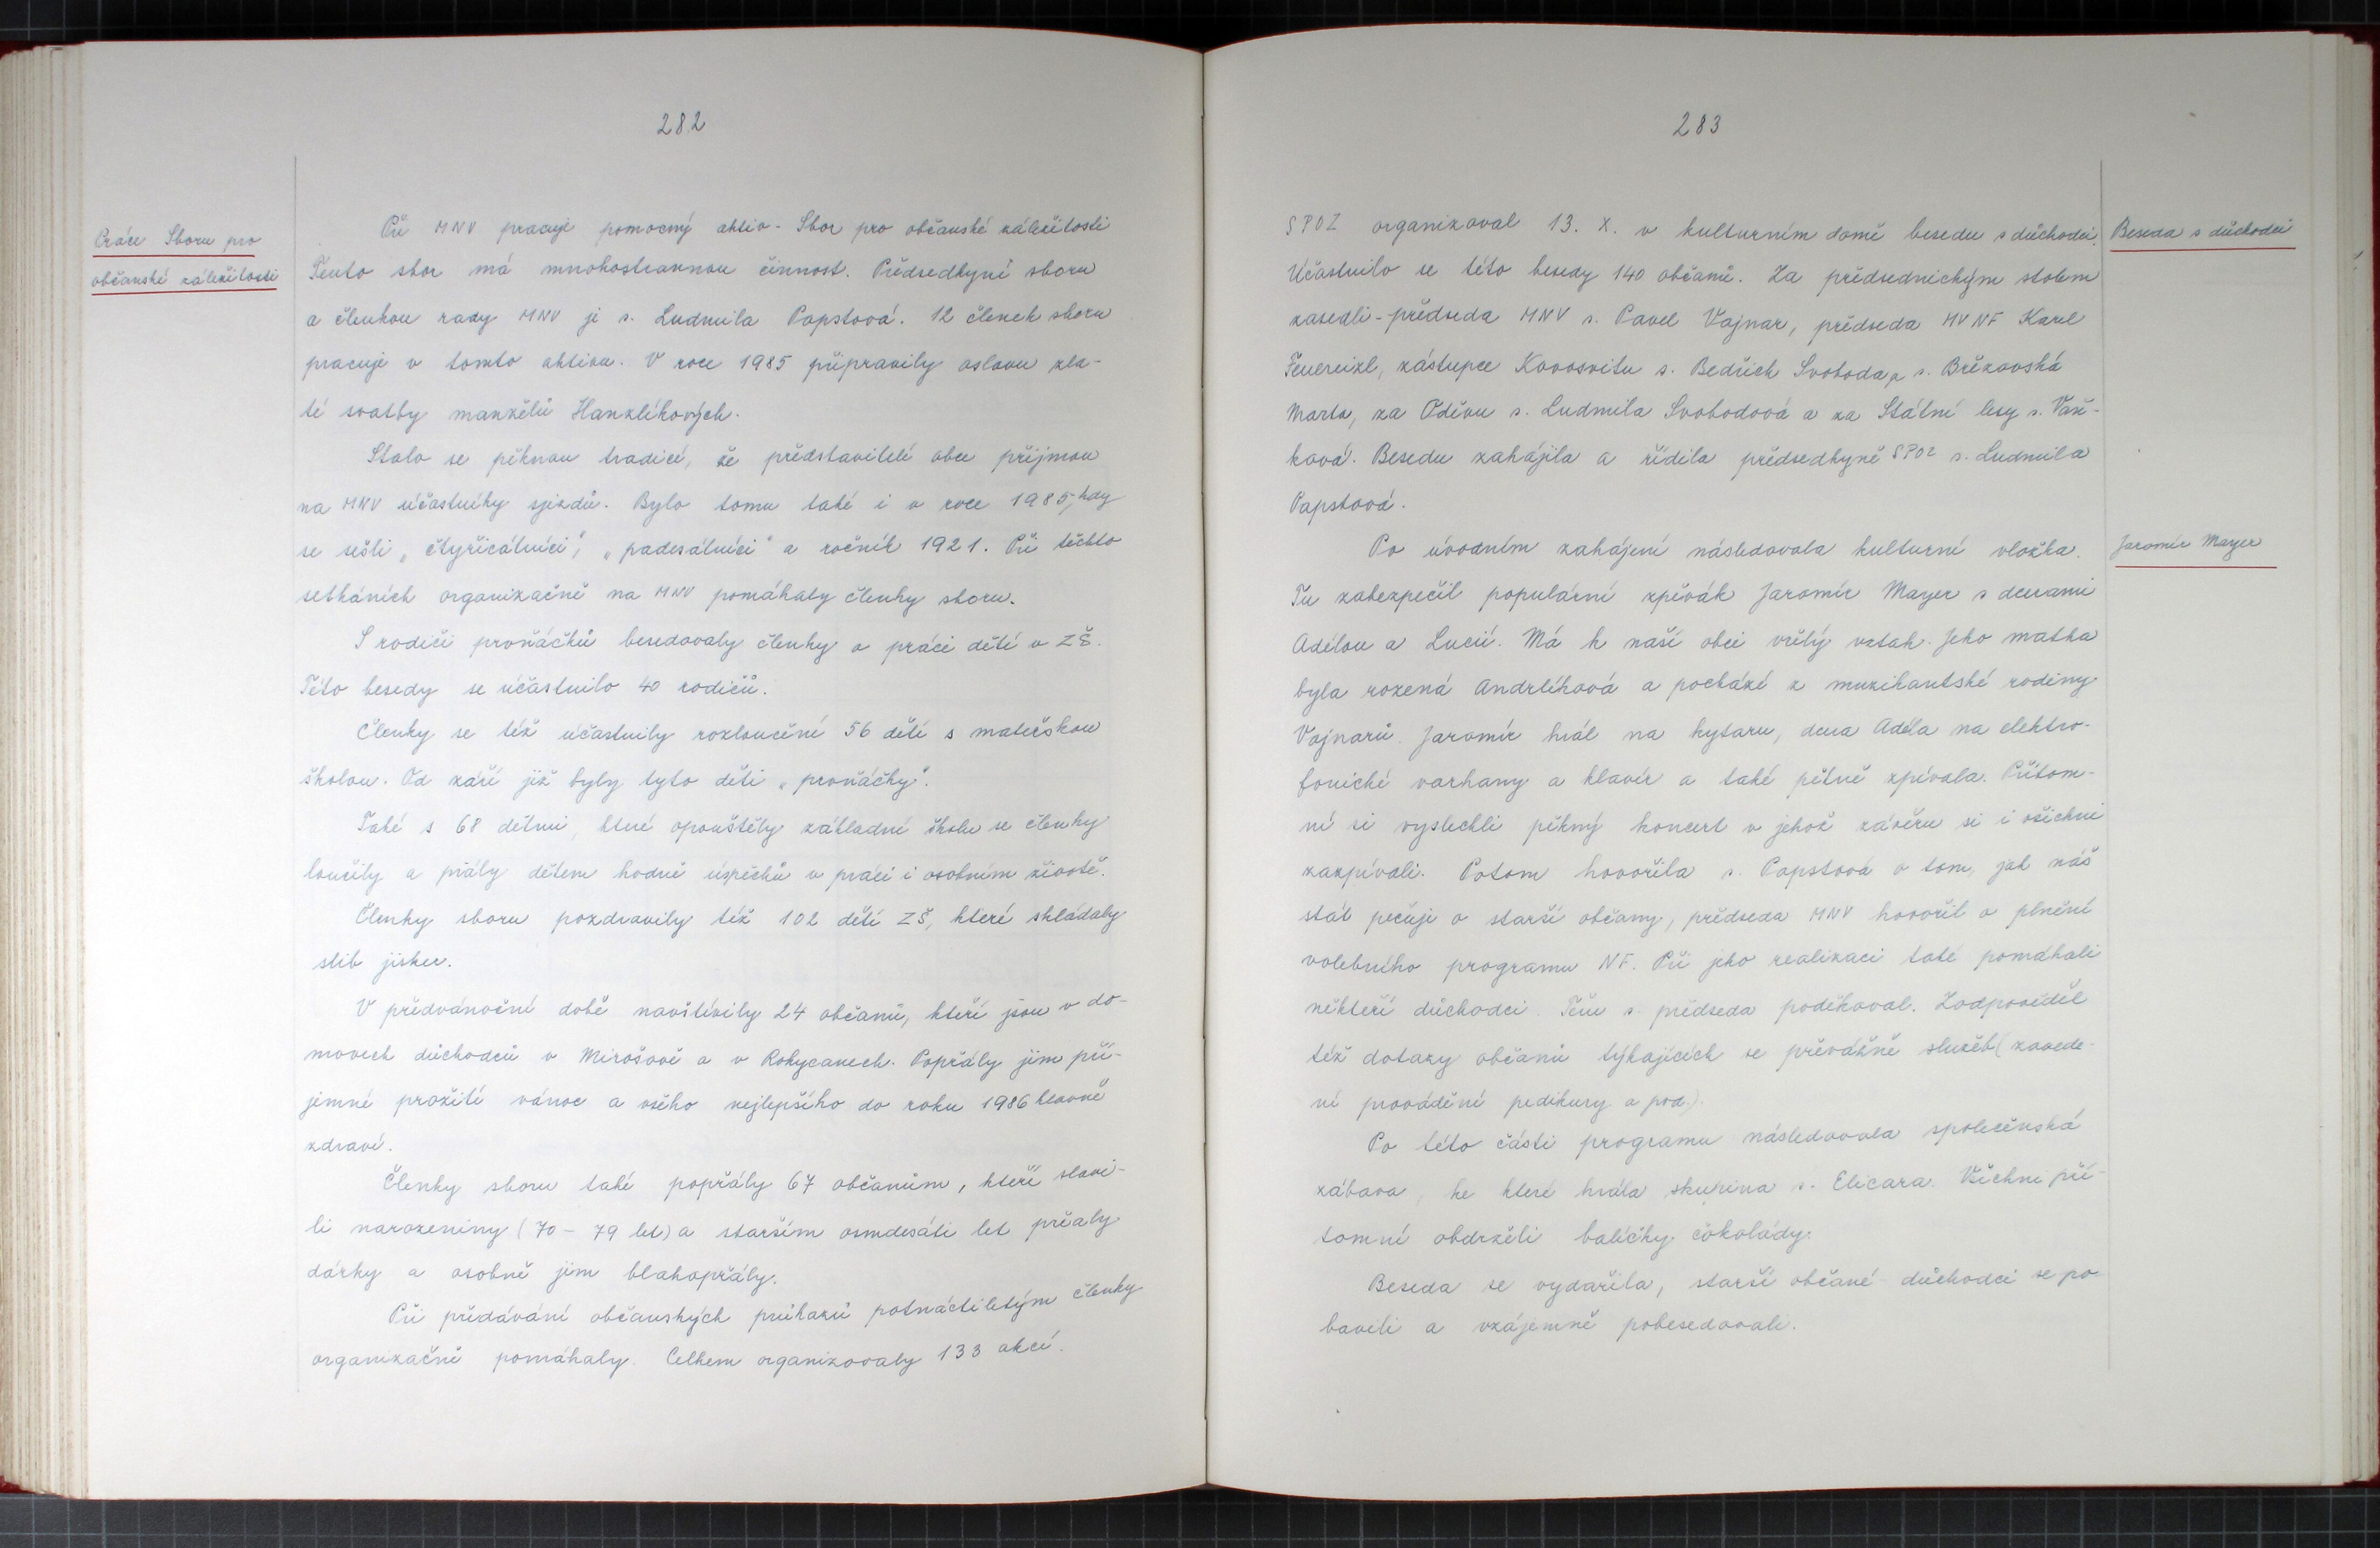 282
Práce Sboru pro
občanské záležitosti
Při MNV pracuje pomocný aktiv - Sbor pro občanské záležitosti
Tento sbor má mnohostrannou činnost. Předsedkyně sboru
a členkou rady MNV je s. Ludmila Papstová. 12 členek sboru
pracuje v tomto aktivu. V roce 1985 připravily oslavu zla-
té svatby manželů Hanzlíkových.
Stalo se pěknou tradicí, že představitelé obce přijmou
na MNV účastníky sjezdů. Bylo tomu také i v roce 1985, kdy
se sešli „čtyřicátníci“, „padesátníci“ a ročník 1921. Při těchto
setkáních organizačně na MNV pomáhaly členky sboru.
S rodiči prvňáčků besedovaly členky o práci dětí v ZŠ.
Této besedy se účastnilo 40 rodičů.
Členky se též účastnily rozloučení 56 dětí s mateřskou
školou. Od září již byly tyto děti „prvňáčky“.
Také s 68 dětmi, které opouštěly základní školu se členky
loučily a přály dětem hodně úspěchů v práci i osobním životě.
Členky sboru pozdravily též 102 dětí ZŠ, které skládaly
slib jisker.
V předvánoční době navštívily 24 občanů, kteří jsou v do-
movech důchodců v Mirošově a v Rokycanech. Popřály jim pří-
jemné prožití vánoc a všeho nejlepšího do roku 1986 hlavně
zdraví.
Členky sboru také popřály 67 občanům, kteří slavi-
li narozeniny (70 - 79 let) a starším osmdesáti let přealy
dárky a osobně jim blahopřály.
Při předávání občanských průkazů patnáctiletým členky
organizačně pomáhaly. Celkem organizovaly 133 akcí.
283
SPOZ organizoval 13. X. v kulturním domě besedu s důchodci.
Beseda s důchodci
Účastnilo se této besedy 140 občanů. Za předsednickým stolem
zasedli - předseda MNV s. Pavel Vajnar, předseda MV NF Karel
Feuereizl, zástupce Kovosvitu s. Bedřich Svoboda, s. Březovská
Marta, za Oděvu s. Ludmila Svobodová a za Státní lesy s. Vaš-
ková. Besedu zahájila a řídila předsedkyně SPOZ s. Ludmila
Papstová.
Po úvodním zahájení následovala kulturní vložka.
Jaromír Mayer
Tu zabezpečil populární zpěvák Jaromír Mayer s dcerami
Adélou a Lucií. Má k naší obci vřelý vztah. Jeho matka
byla rozená Andrlíková a pochází z muzikantské rodiny
Vajnarů. Jaromír hrál na kytaru, dcera Adéla na elektro-
fonické varhany a klavír a také pěkně zpívala. Přítom-
ní si vyslechli pěkný koncert v jehož závěru si i všichni
zazpívali. Potom hovořila s. Papstová o tom, jak náš
stát pečuje o starší občany, předseda MNV hovořil o plnění
volebního programu NF. Při jeho realizaci také pomáhali
někteří důchodci. Těm s. předseda poděkoval. Zodpověděl
též dotazy občanů týkajících se převážně služeb (zavede-
ní provádění pedikury a pod.).
Po této části programu následovala společenská
zábava, ke které hrála skupina s. Elicara. Všichni pří-
tomní obdrželi balíčky čokolády.
Beseda se vydařila, starší občané - důchodci se po-
bavili a vzájemně pobesedovali.